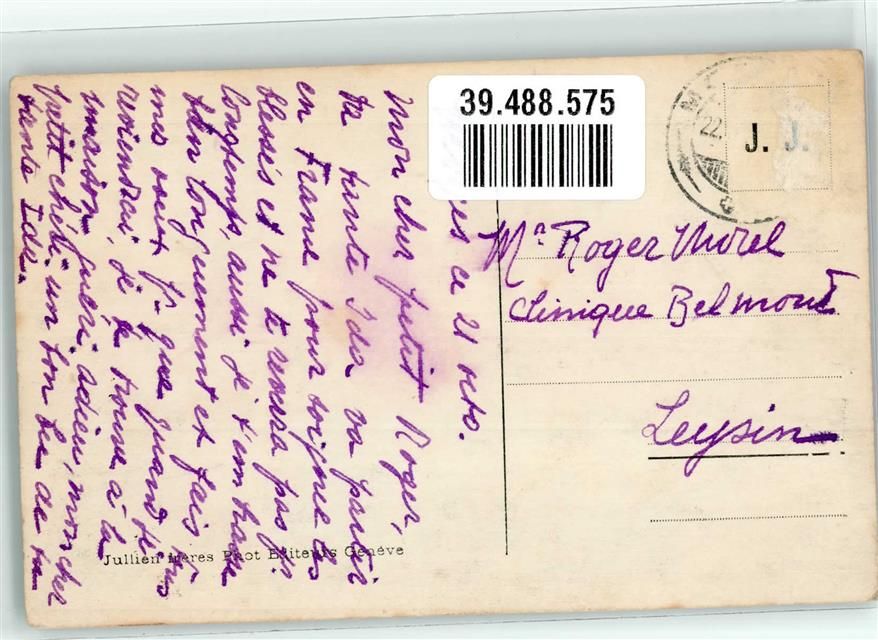 39.488.575
J. J.
22.
es ce 21 octo.
Mon cher petit Roger,
ta tante Ida va partir
en France pour soigner les
blessés et ne te verra pas d'ici
longtemps, aussi je t'embrasse
bien longuement et fais tous
mes vœux pr que quand je
reviendrai je te trouve à la
maison, guéri. adieu, mon cher
petit chéri, un bon bec de ta
tante Ida.
Mr Roger Morel
Clinique Belmont
Leysin
Jullien frères Phot Editeurs Genève